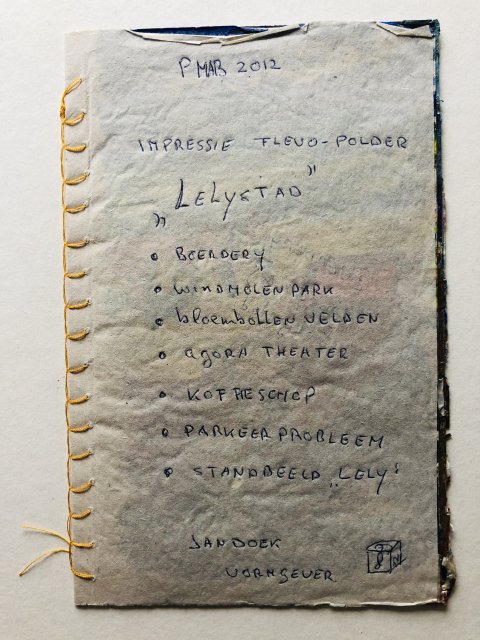 P MAB 2012
IMPRESSIE FLEVO-POLDER
„LELYSTAD”
• BOERDERY
• WINDMOLEN PARK
• bloembollen VELDEN
• agora THEATER
• KOFFIESCHOP
• PARKEER PROBLEEM
• STANDBEELD „LELY”
JAN DOEK
VORMGEVER